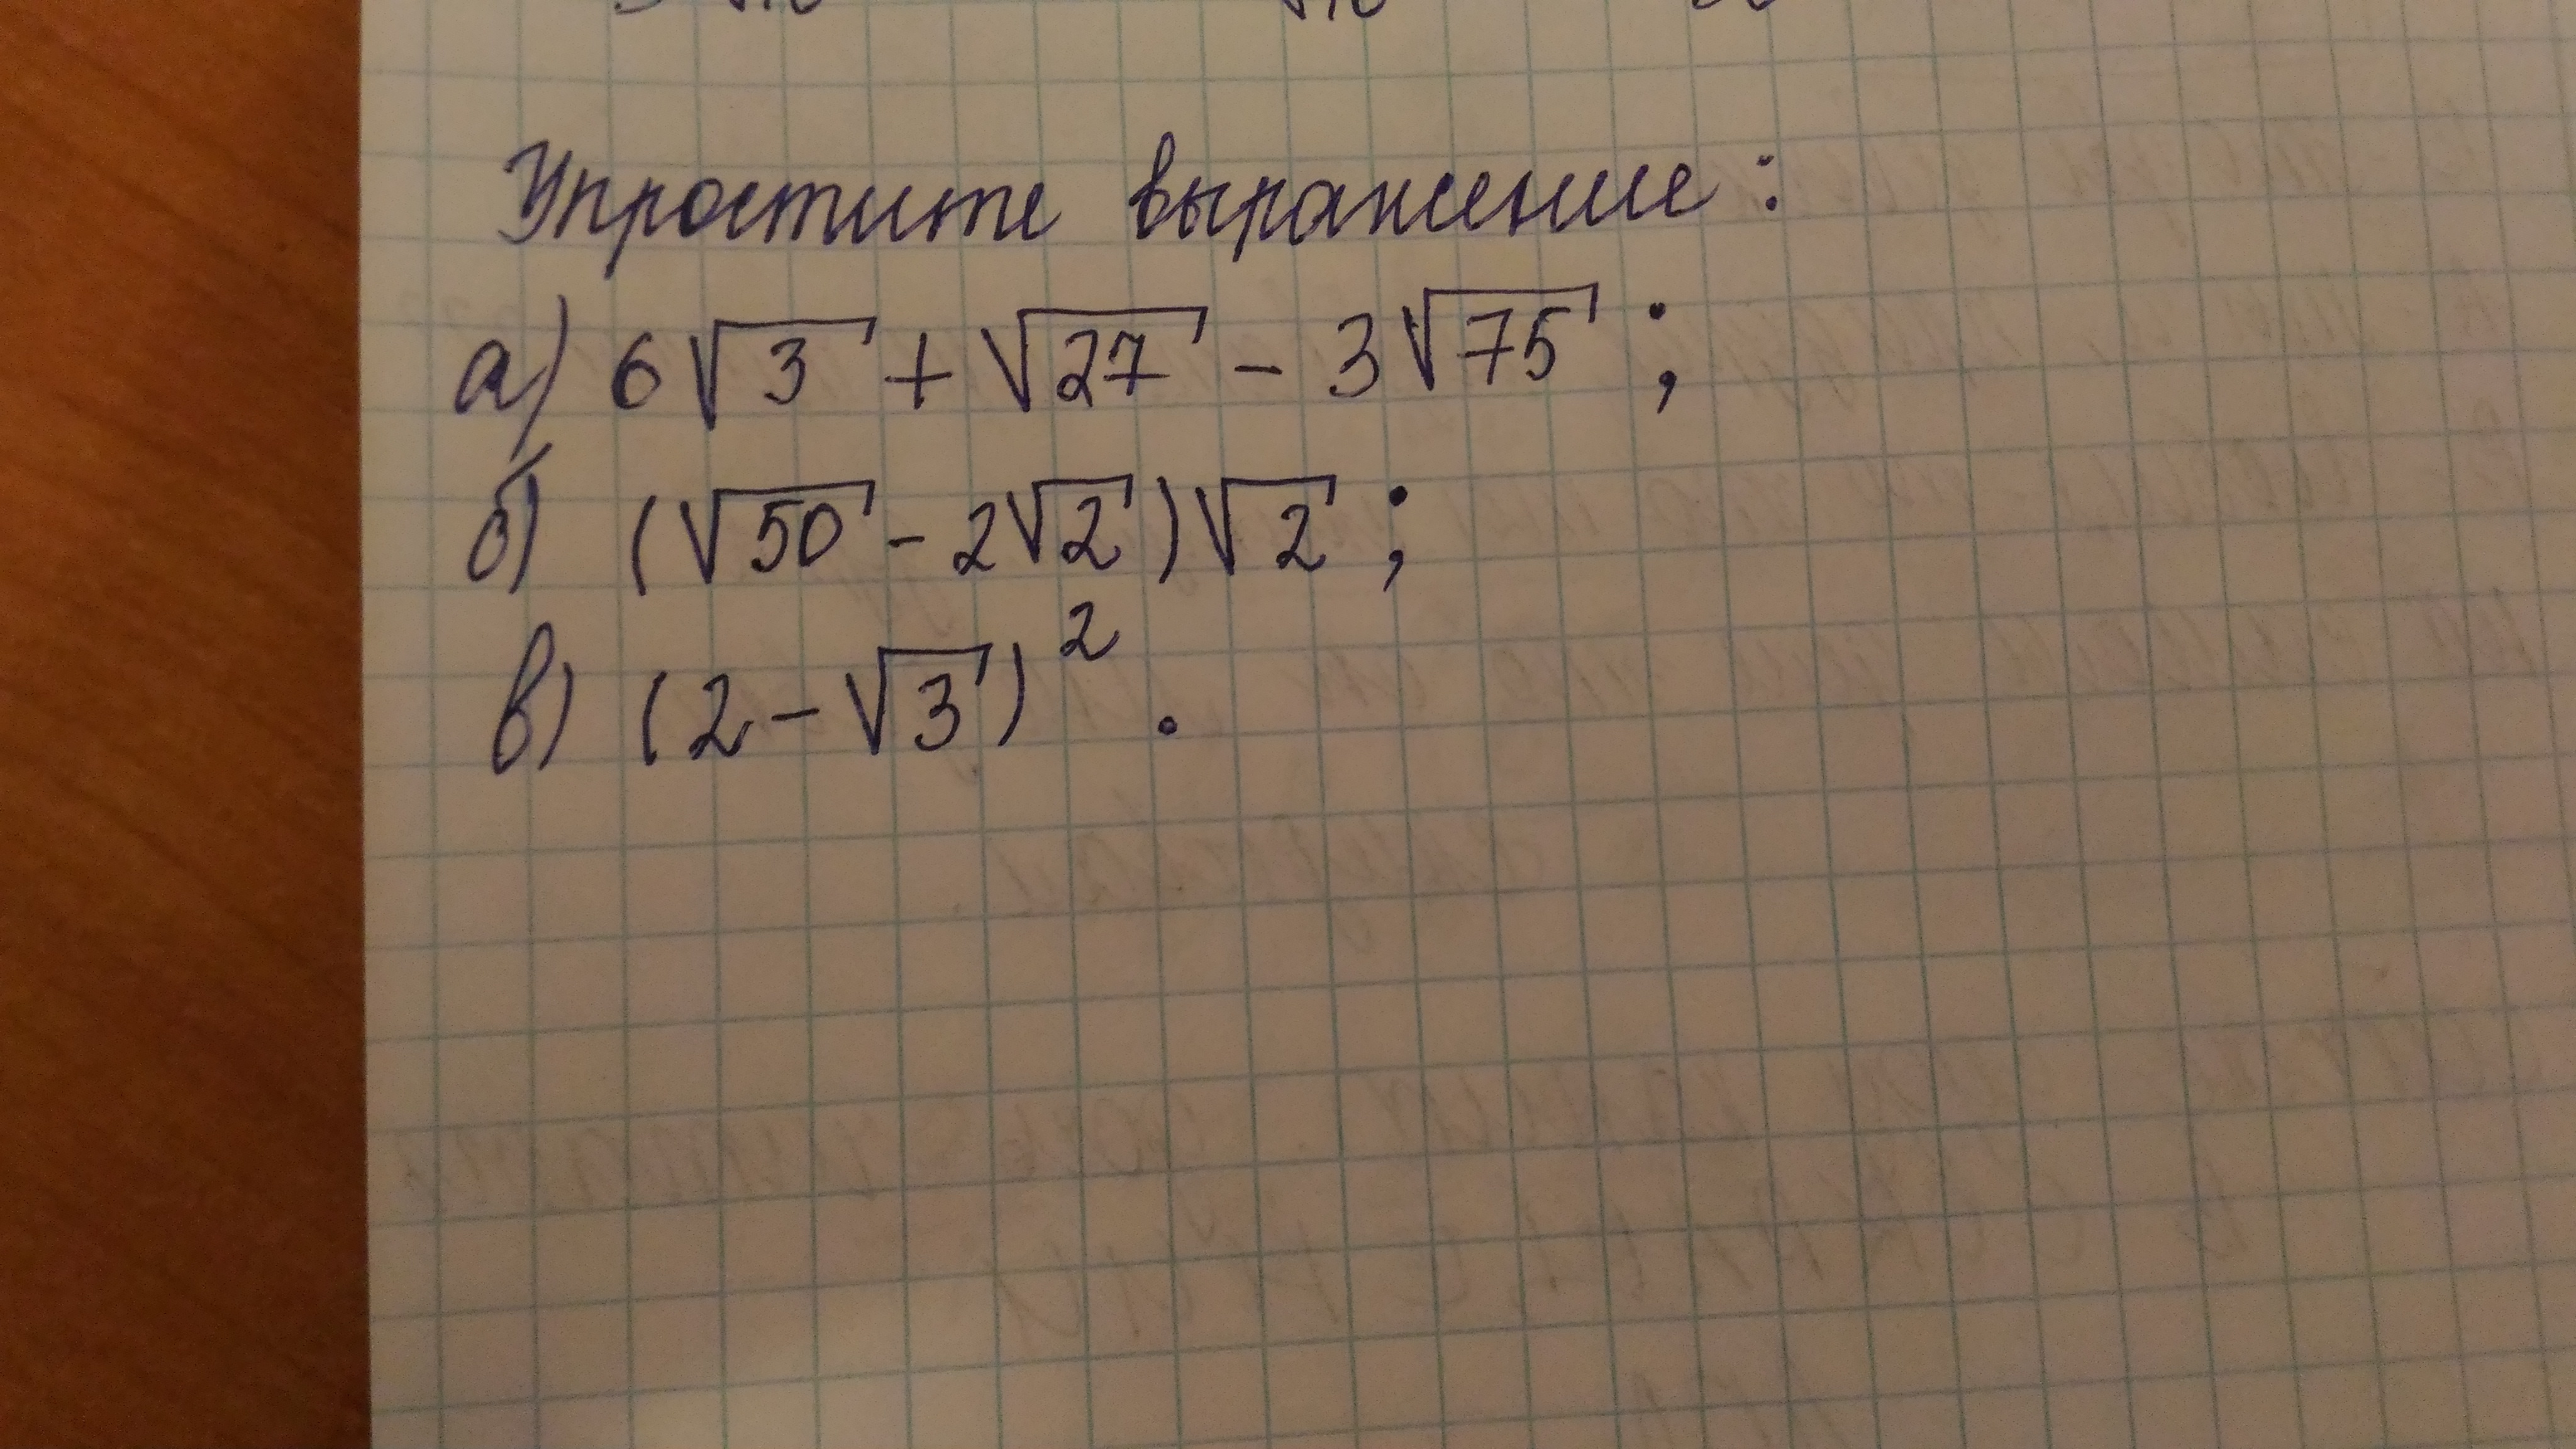 Упростите выражение:
а) 6√3 + √27 - 3√75 ;
б) (√50 - 2√2)√2 ;
в) (2 - √3)² .